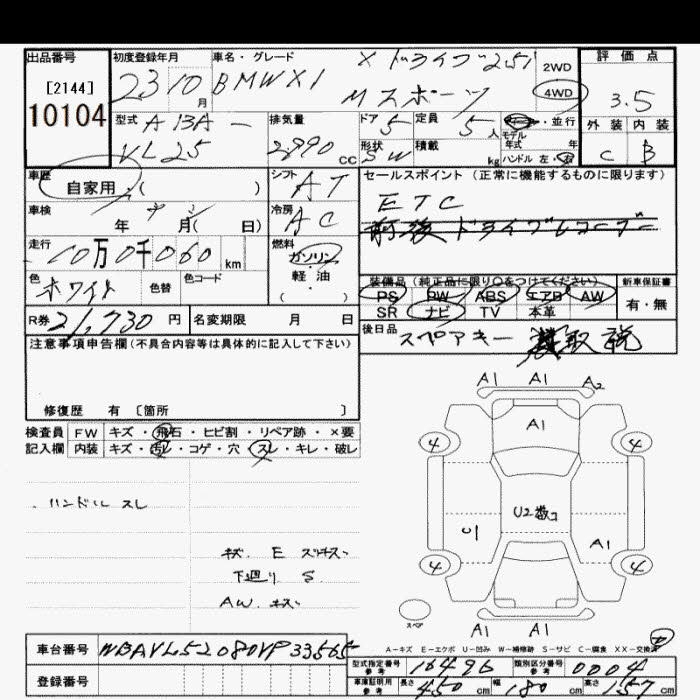 出品番号
[2144]
10104
初度登録年月
23 10 月
車名・グレード
BMW X1
X ドライブ 25i
Mスポーツ
2WD
4WD
評価点
3.5
外装 内装
C B
型式
VL25
排気量
2,990 cc
ドア
5
定員
5 人
・並行
モデル
年式 年
形状
SW
積載
kg
ハンドル 左・右
車歴
自家用・( )
シフト
AT
セールスポイント (正常に機能するものに限ります)
ETC
前後ドライブレコーダー
車検
年 月( 日)
冷房
AC
走行
10万0千060 km
燃料
ガソリン
軽・油
( )
色
ホワイト
色替
色コード
装備品 (純正品に限り○をつけてください)
PS PW ABS エアB AW
SR ナビ TV 本革
新車保証書
有・無
R券 21,730 円
名変期限 月 日
後日品
スペアキー 取説
注意事項申告欄(不具合内容等は具体的に記入して下さい)
修復歴 有 [箇所 ]
検査員
記入欄
FW キズ・飛石・ヒビ割・リペア跡・×要
内装 キズ・汚レ・コゲ・穴・スレ・キレ・破レ
ハンドル スレ
キズ E
下廻り S
AW. キズ
A1 A1 A2
A1
4 4
U2数コ
U1
A1
4 4
スペア
A1 A1
A-キズ E-エクボ U-凹み W-補修跡 S-サビ C-腐食 XX-交換済
車台番号 WBAVL52080VP33565
登録番号
型式指定番号
参考
16496
類別区分番号
参考
0004
車庫証明用
参考
長さ 450 cm
幅 180 cm
高さ 157 cm